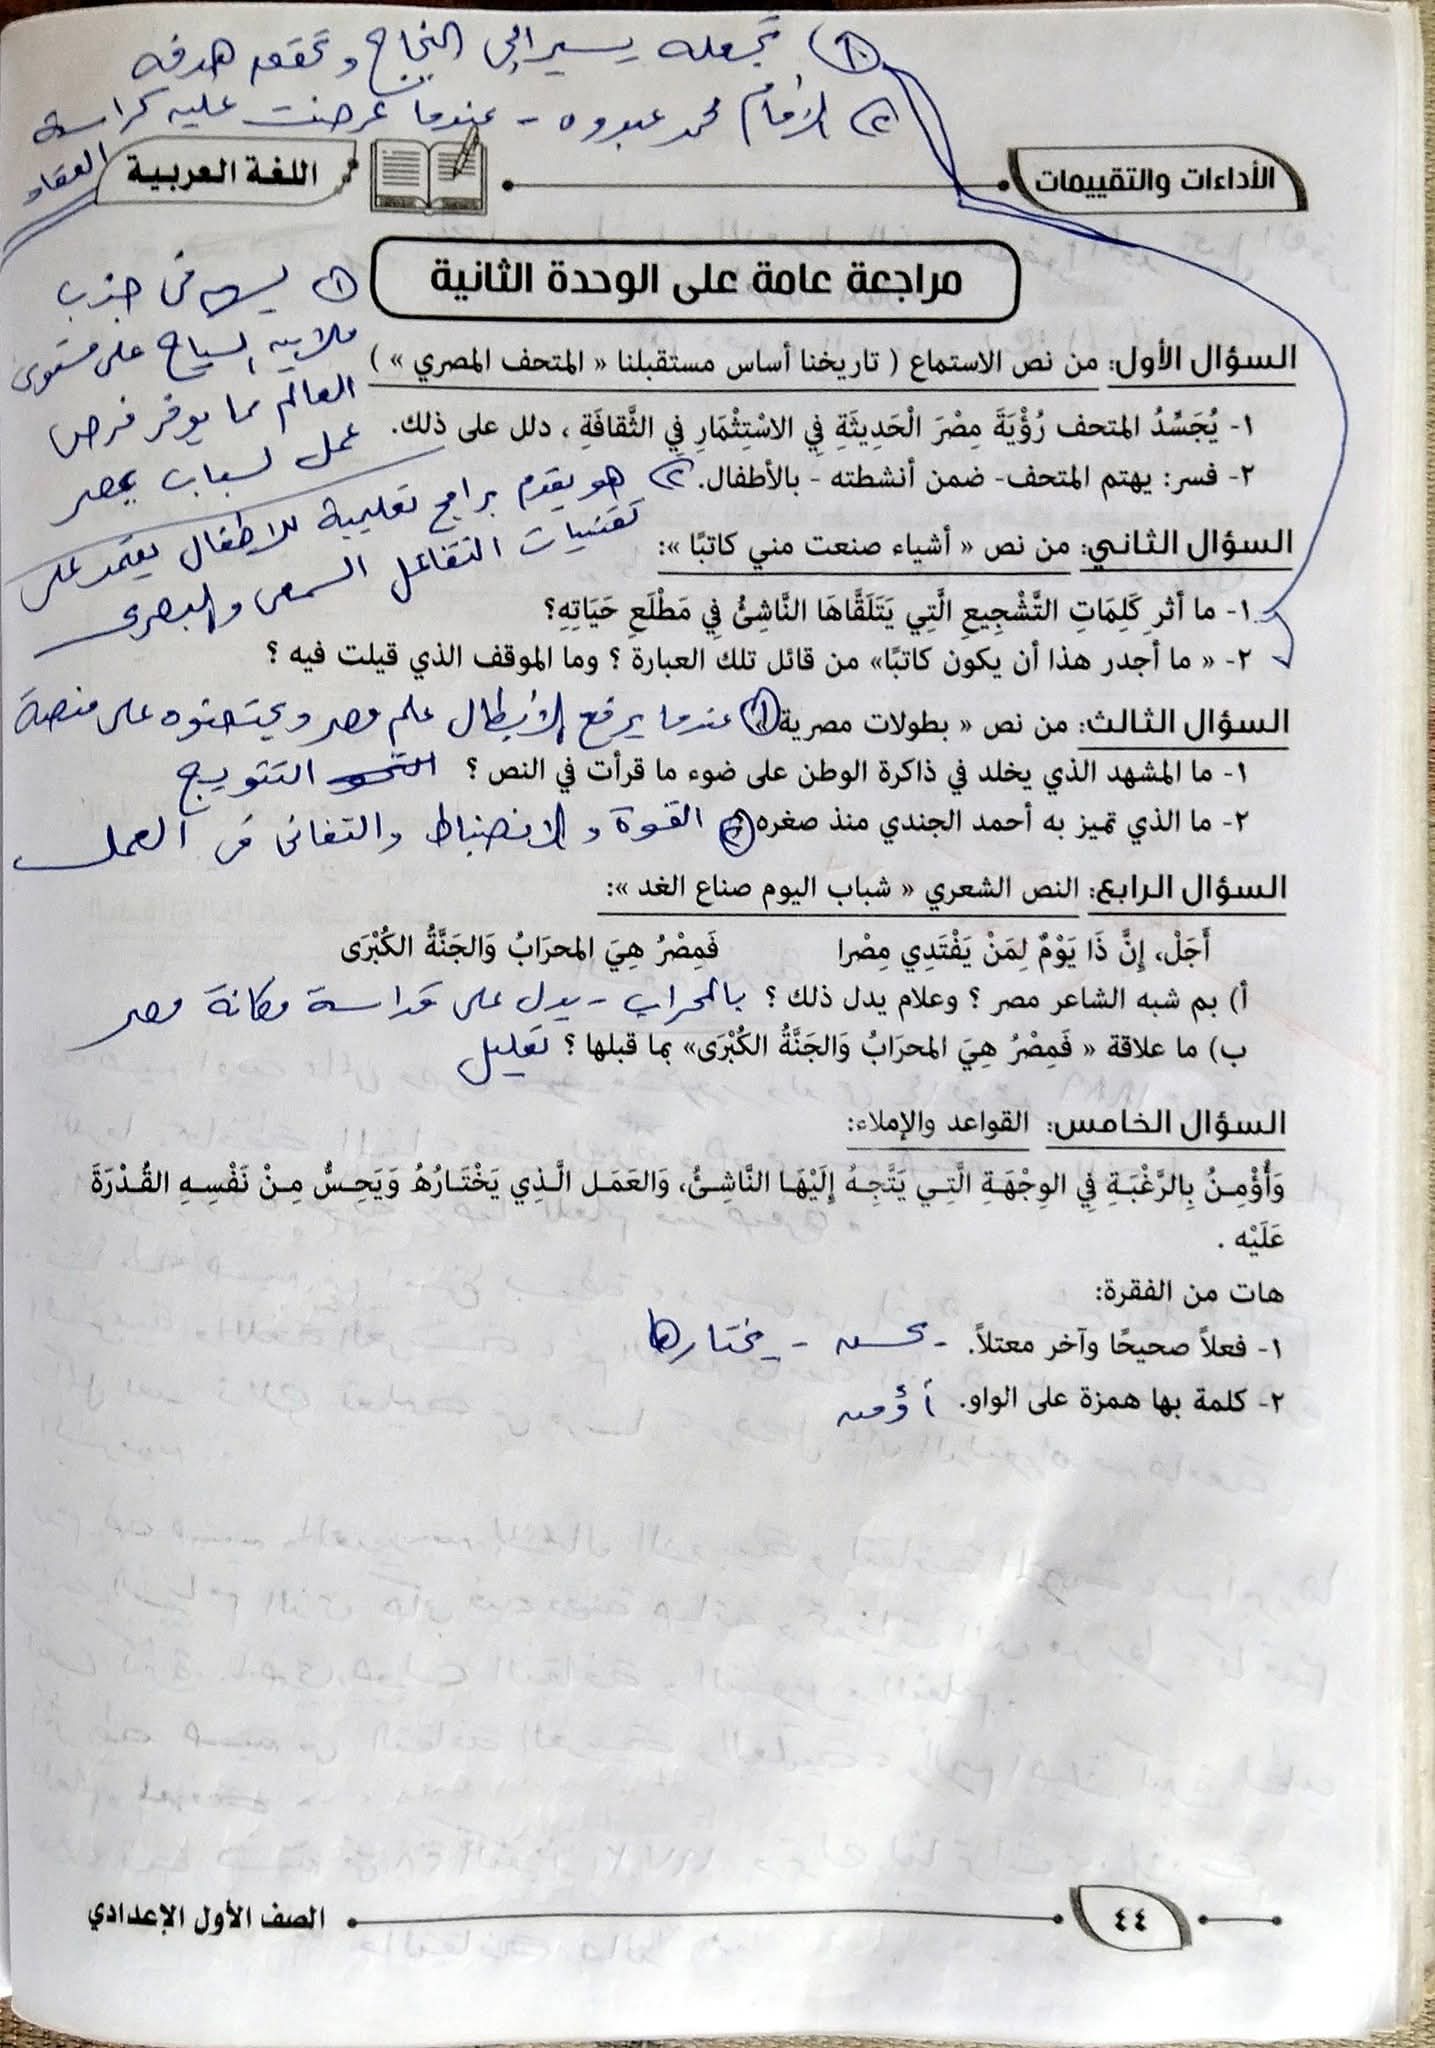 ١) تجعله يسير إلى النجاح وتحقق هدفه
٢) الإمام محمد عبدوه - عندما عرضت عليه كراسة
العقاد
الأداءات والتقييمات
اللغة العربية
مراجعة عامة على الوحدة الثانية
السؤال الأول: من نص الاستماع ( تاريخنا أساس مستقبلنا « المتحف المصري » )
١- يُجَسِّدُ المتحف رُؤْيَةَ مِصْرَ الْحَدِيثَةِ فِي الاسْتِثْمَارِ فِي الثَّقافَةِ ، دلل على ذلك.
١) يسهم فى جذب
ملايين السياح على مستوى
العالم مما يوفر فرص
عمل لشباب بمصر
٢- فسر: يهتم المتحف- ضمن أنشطته - بالأطفال.
٢) هو يقدم برامج تعليمية للاطفال يعتمد على
تقنيات التفاعل السمعى والبصرى
السؤال الثاني: من نص « أشياء صنعت مني كاتبًا »:
١- ما أثر كَلِمَاتِ التَّشْجِيعِ الَّتِي يَتَلَقَّاهَا النَّاشِئُ فِي مَطْلَعِ حَيَاتِهِ؟
٢- « ما أجدر هذا أن يكون كاتبًا» من قائل تلك العبارة ؟ وما الموقف الذي قيلت فيه ؟
السؤال الثالث: من نص « بطولات مصرية» ١) عندما يرفع الأبطال علم مصر ويحتضنوه على منصة
١- ما المشهد الذي يخلد في ذاكرة الوطن على ضوء ما قرأت في النص ؟ التتويج
٢- ما الذي تميز به أحمد الجندي منذ صغره ٢) القوة والانضباط والتفانى فى العمل
السؤال الرابع: النص الشعري « شباب اليوم صناع الغد »:
أَجَلْ، إِنَّ ذَا يَوْمٌ لِمَنْ يَفْتَدِي مِصْرا فَمِصْرُ هِيَ المحرَابُ وَالجَنَّةُ الكُبْرَى
أ) بم شبه الشاعر مصر ؟ وعلام يدل ذلك ؟ بالمحراب - يدل على قداسة مكانة مصر
ب) ما علاقة « فَمِصْرُ هِيَ المحرَابُ وَالجَنَّةُ الكُبْرَى» بما قبلها ؟ تعليل
السؤال الخامس: القواعد والإملاء:
وَأُؤْمِنُ بِالرَّغْبَةِ فِي الوِجْهَةِ الَّتِي يَتَّجِهُ إِلَيْهَا النَّاشِئُ، وَالعَمَل الَّذِي يَخْتَارُهُ وَيَحِسُّ مِنْ نَفْسِهِ القُدْرَةَ
عَلَيْه .
هات من الفقرة:
١- فعلاً صحيحًا وآخر معتلاً. - يحسن - يختارها
٢- كلمة بها همزة على الواو. أؤمن
٤٤
الصف الأول الإعدادي